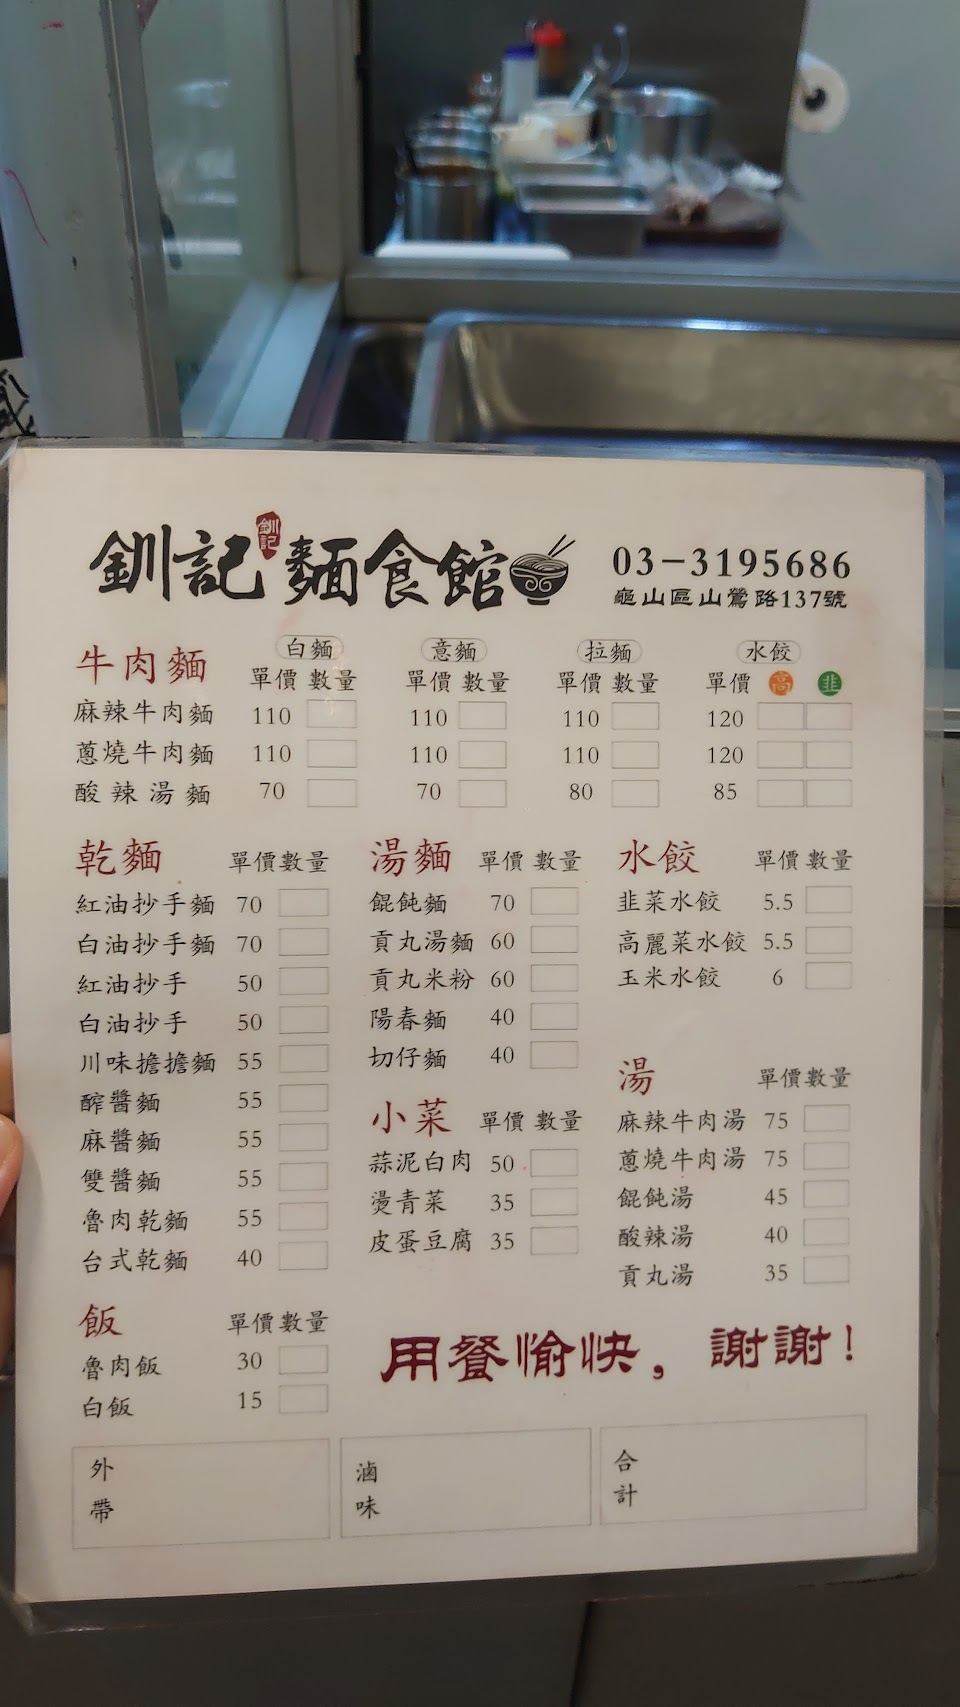 釧記麵食館
釧記
03-3195686
龜山區山鶯路137號
牛肉麵 白麵 意麵 拉麵 水餃
單價 數量 單價 數量 單價 數量 單價 高 韭
麻辣牛肉麵 110 110 110 120
蔥燒牛肉麵 110 110 110 120
酸辣湯麵 70 70 80 85
乾麵 單價 數量
紅油抄手麵 70
白油抄手麵 70
紅油抄手 50
白油抄手 50
川味擔擔麵 55
醡醬麵 55
麻醬麵 55
雙醬麵 55
魯肉乾麵 55
台式乾麵 40
飯 單價 數量
魯肉飯 30
白飯 15
湯麵 單價 數量
餛飩麵 70
貢丸湯麵 60
貢丸米粉 60
陽春麵 40
切仔麵 40
小菜 單價 數量
蒜泥白肉 50
燙青菜 35
皮蛋豆腐 35
水餃 單價 數量
韭菜水餃 5.5
高麗菜水餃 5.5
玉米水餃 6
湯 單價 數量
麻辣牛肉湯 75
蔥燒牛肉湯 75
餛飩湯 45
酸辣湯 40
貢丸湯 35
用餐愉快，謝謝！
外帶
滷味
合計